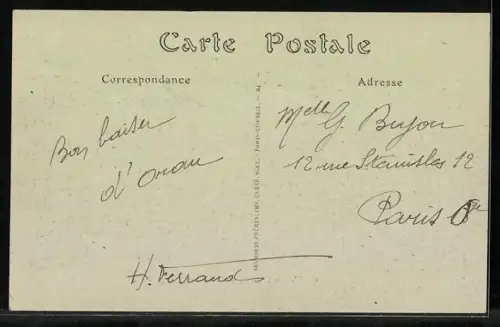 Carte Postale
Correspondance
Adresse
Bon baiser
d'oran
H. Ferrand
Melle G. Bujon
12 rue Stanislas 12
Paris 6e